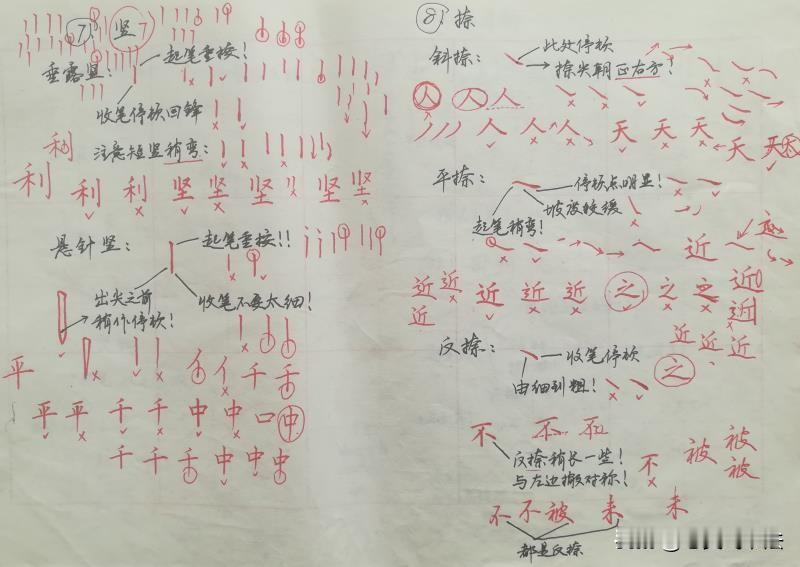 ⑦ 竖
垂露竖：
起笔重按！
收笔停顿回锋
注意短竖稍弯：
利
利 利 利 坚 坚 坚 坚 坚
悬针竖：
起笔重按！！
出尖之前
稍作停顿！
收笔不要太细！
千 千
平
平 平 千 千 中 中 中
千 千 千 中 中 中
⑧ 捺
斜捺：
此处停顿
捺尖朝正右方！
人 人 人
人 人 人 天 天 天 天 天 天
平捺：
停顿点明显！
坡度较缓
起笔稍弯！
近
近 近 近 近 近 之 之 之 近
近 近
近 近 近
反捺：
收笔停顿
由细到粗！
之
不 不 不
反捺稍长一些！
与左边撇对称！
不 被 被
被
不 不 被 未 未
都是反捺